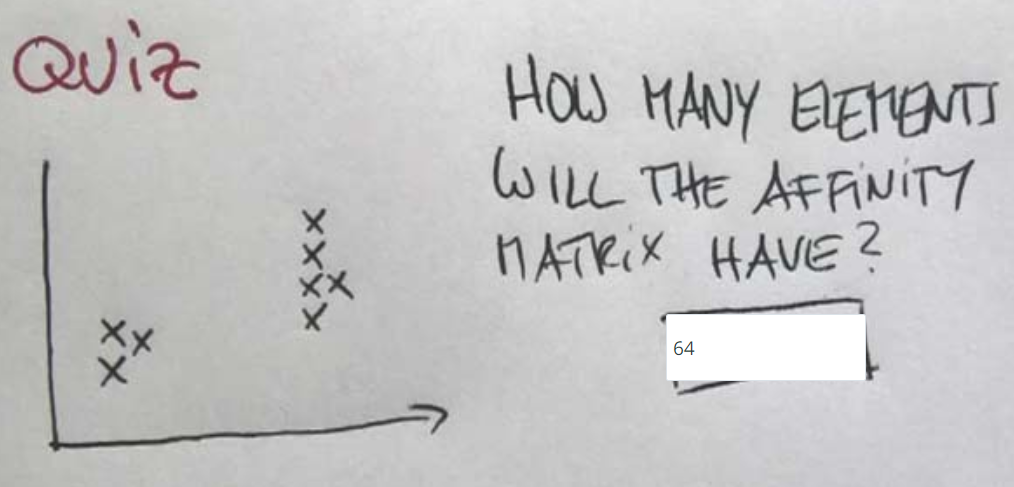 QUiZ
HOW MANY ELEMENTS
WILL THE AFFiNiTY
MATRiX HAVE?
64